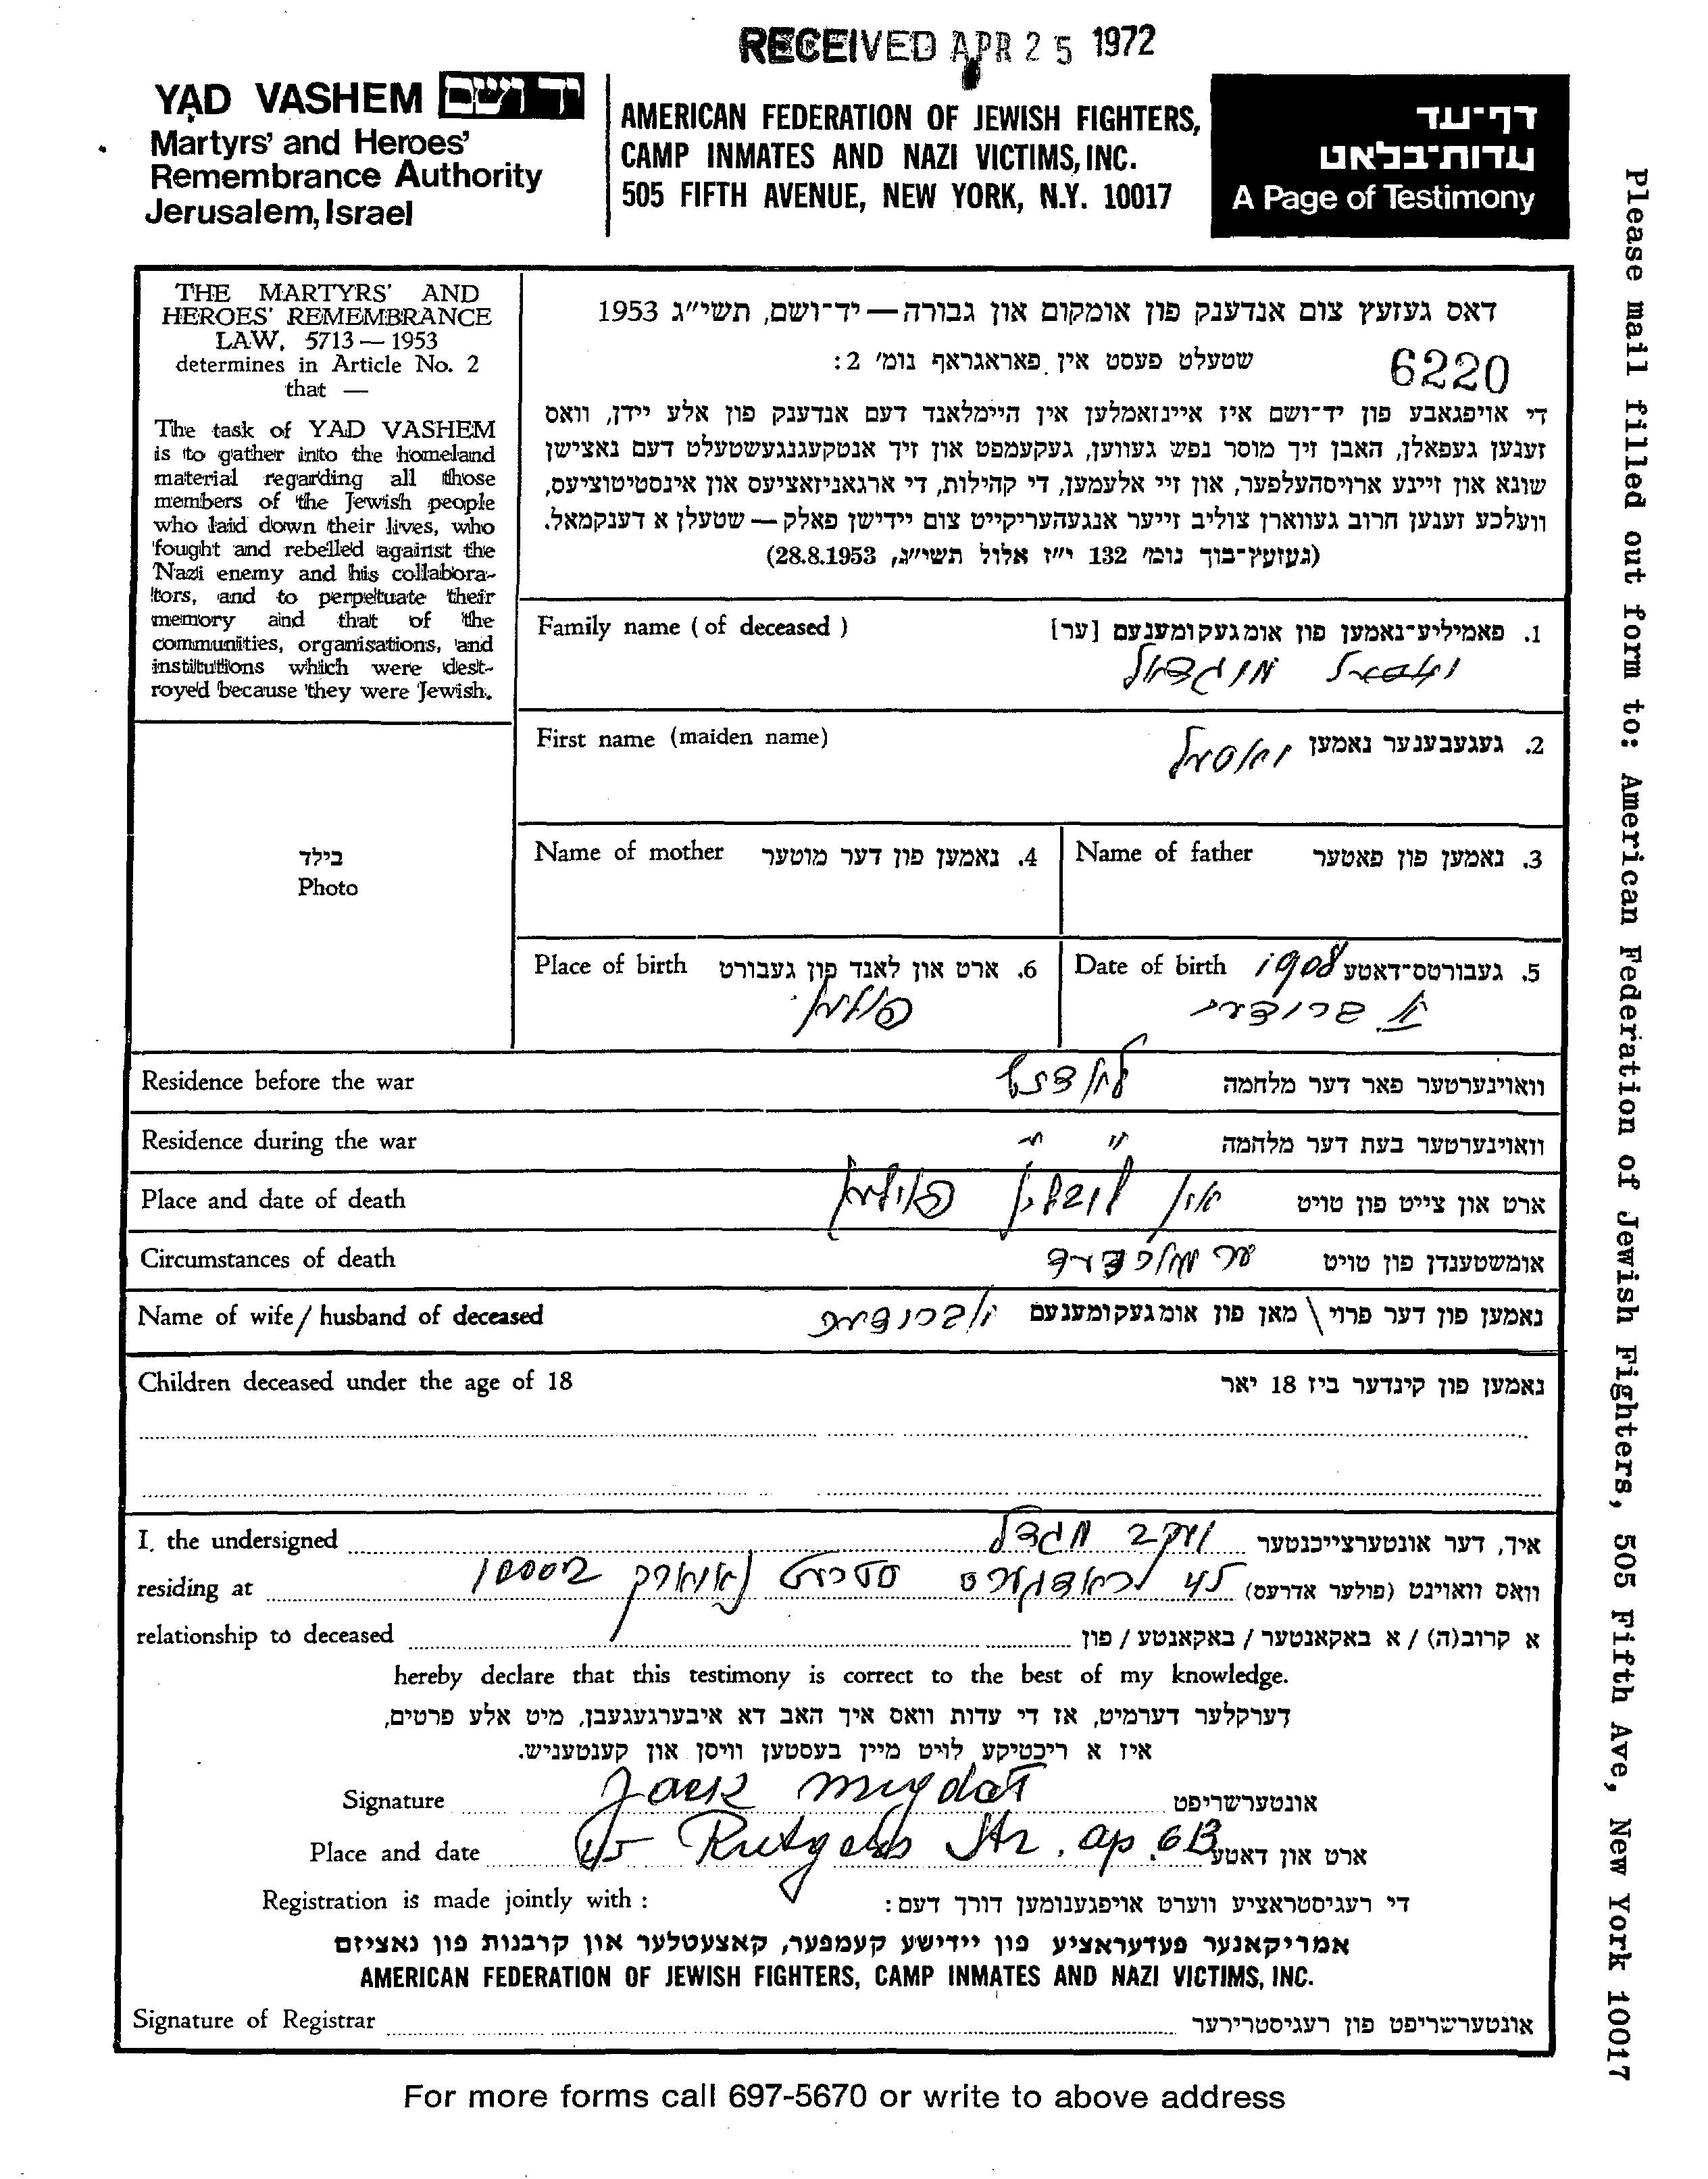 RECEIVED APR 25 1972
YAD VASHEM יד ושם
Martyrs' and Heroes'
Remembrance Authority
Jerusalem, Israel
AMERICAN FEDERATION OF JEWISH FIGHTERS,
CAMP INMATES AND NAZI VICTIMS, INC.
505 FIFTH AVENUE, NEW YORK, N.Y. 10017
דף־עד
עדות־בלאט
A Page of Testimony
Please mail filled out form to: American Federation of Jewish Fighters, 505 Fifth Ave, New York 10017
THE MARTYRS' AND
HEROES' REMEMBRANCE
LAW, 5713 — 1953
determines in Article No. 2
that —
The task of YAD VASHEM
is to gather into the homeland
material regarding all those
members of the Jewish people
who laid down their lives, who
fought and rebelled against the
Nazi enemy and his collabora-
tors, and to perpetuate their
memory and that of the
communities, organisations, and
institutions which were dest-
royed because they were Jewish.
דאס געזעץ צום אנדענק פון אומקום און גבורה — יד־ושם, תשי"ג 1953
שטעלט פעסט אין פאראגראף נומ' 2:
6220
די אויפגאבע פון יד־ושם איז איינזאמלען אין היימלאנד דעם אנדענק פון אלע יידן, וואס
זענען געפאלן, האבן זיך מוסר נפש געווען, געקעמפט און זיך אנטקעגנגעשטעלט דעם נאצישן
שונא און זיינע ארויסהעלפער, און זיי אלעמען, די קהילות, די ארגאניזאציעס און אינסטיטוציעס,
וועלכע זענען חרוב געווארן צוליב זייער אנגעהעריקייט צום יידישן פאלק — שטעלן א דענקמאל.
(געזעץ־בוך נומ' 132 י"ז אלול תשי"ג, 28.8.1953)
Family name ( of deceased ) 1. פאמיליע־נאמען פון אומגעקומענעם [ער]
מוגדאל
First name (maiden name) 2. געגעבענער נאמען
בילד
Photo
Name of mother 4. נאמען פון דער מוטער
Name of father 3. נאמען פון פאטער
Place of birth 6. ארט און לאנד פון געבורט
פוילען
Date of birth 1908 5. געבורטס־דאטע
Residence before the war וואוינערטער פאר דער מלחמה
לאדזש
Residence during the war " " וואוינערטער בעת דער מלחמה
Place and date of death אין לובלין פוילען ארט און צייט פון טויט
Circumstances of death אומשטענדן פון טויט
Name of wife / husband of deceased נאמען פון דער פרוי \ מאן פון אומגעקומענעם
Children deceased under the age of 18 נאמען פון קינדער ביז 18 יאר
I, the undersigned איך, דער אונטערצייכנטער יעקב מגדל
residing at וואס וואוינט (פולער אדרעס) 45 ראדגערס סטריט נ׳ יארק 10002
relationship to deceased א קרוב(ה) / א באקאנטער / באקאנטע / פון
hereby declare that this testimony is correct to the best of my knowledge.
דערקלער דערמיט, אז די עדות וואס איך האב דא איבערגעגעבן, מיט אלע פרטים,
איז א ריכטיקע לויט מיין בעסטען וויסן און קענטעניש.
Signature Jack Migdal אונטערשריפט
Place and date 45 Rutgers Str. ap. 6B ארט און דאטע
Registration is made jointly with : די רעגיסטראציע ווערט אויפגענומען דורך דעם:
אמריקאנער פעדעראציע פון יידישע קעמפער, קאצעטלער און קרבנות פון נאציזם
AMERICAN FEDERATION OF JEWISH FIGHTERS, CAMP INMATES AND NAZI VICTIMS, INC.
Signature of Registrar אונטערשריפט פון רעגיסטרירער
For more forms call 697-5670 or write to above address